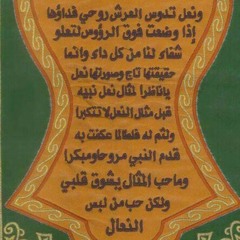 ونعل تدوس العرش روحي فداؤها
إذا وضعت فوق الرؤوس لتعلو
شفاء لنا من كل داء وانما
حقيقتها تاج وصورتها نعل
ياناظرا لمثال نعل نبيه
قبل مثال النعل لا تتكبرا
والثم له فلطالما عكفت به
قدم النبي مروحا ومبكرا
وماحب المثال يشوق قلبي
ولكن حب من لبس
النعال